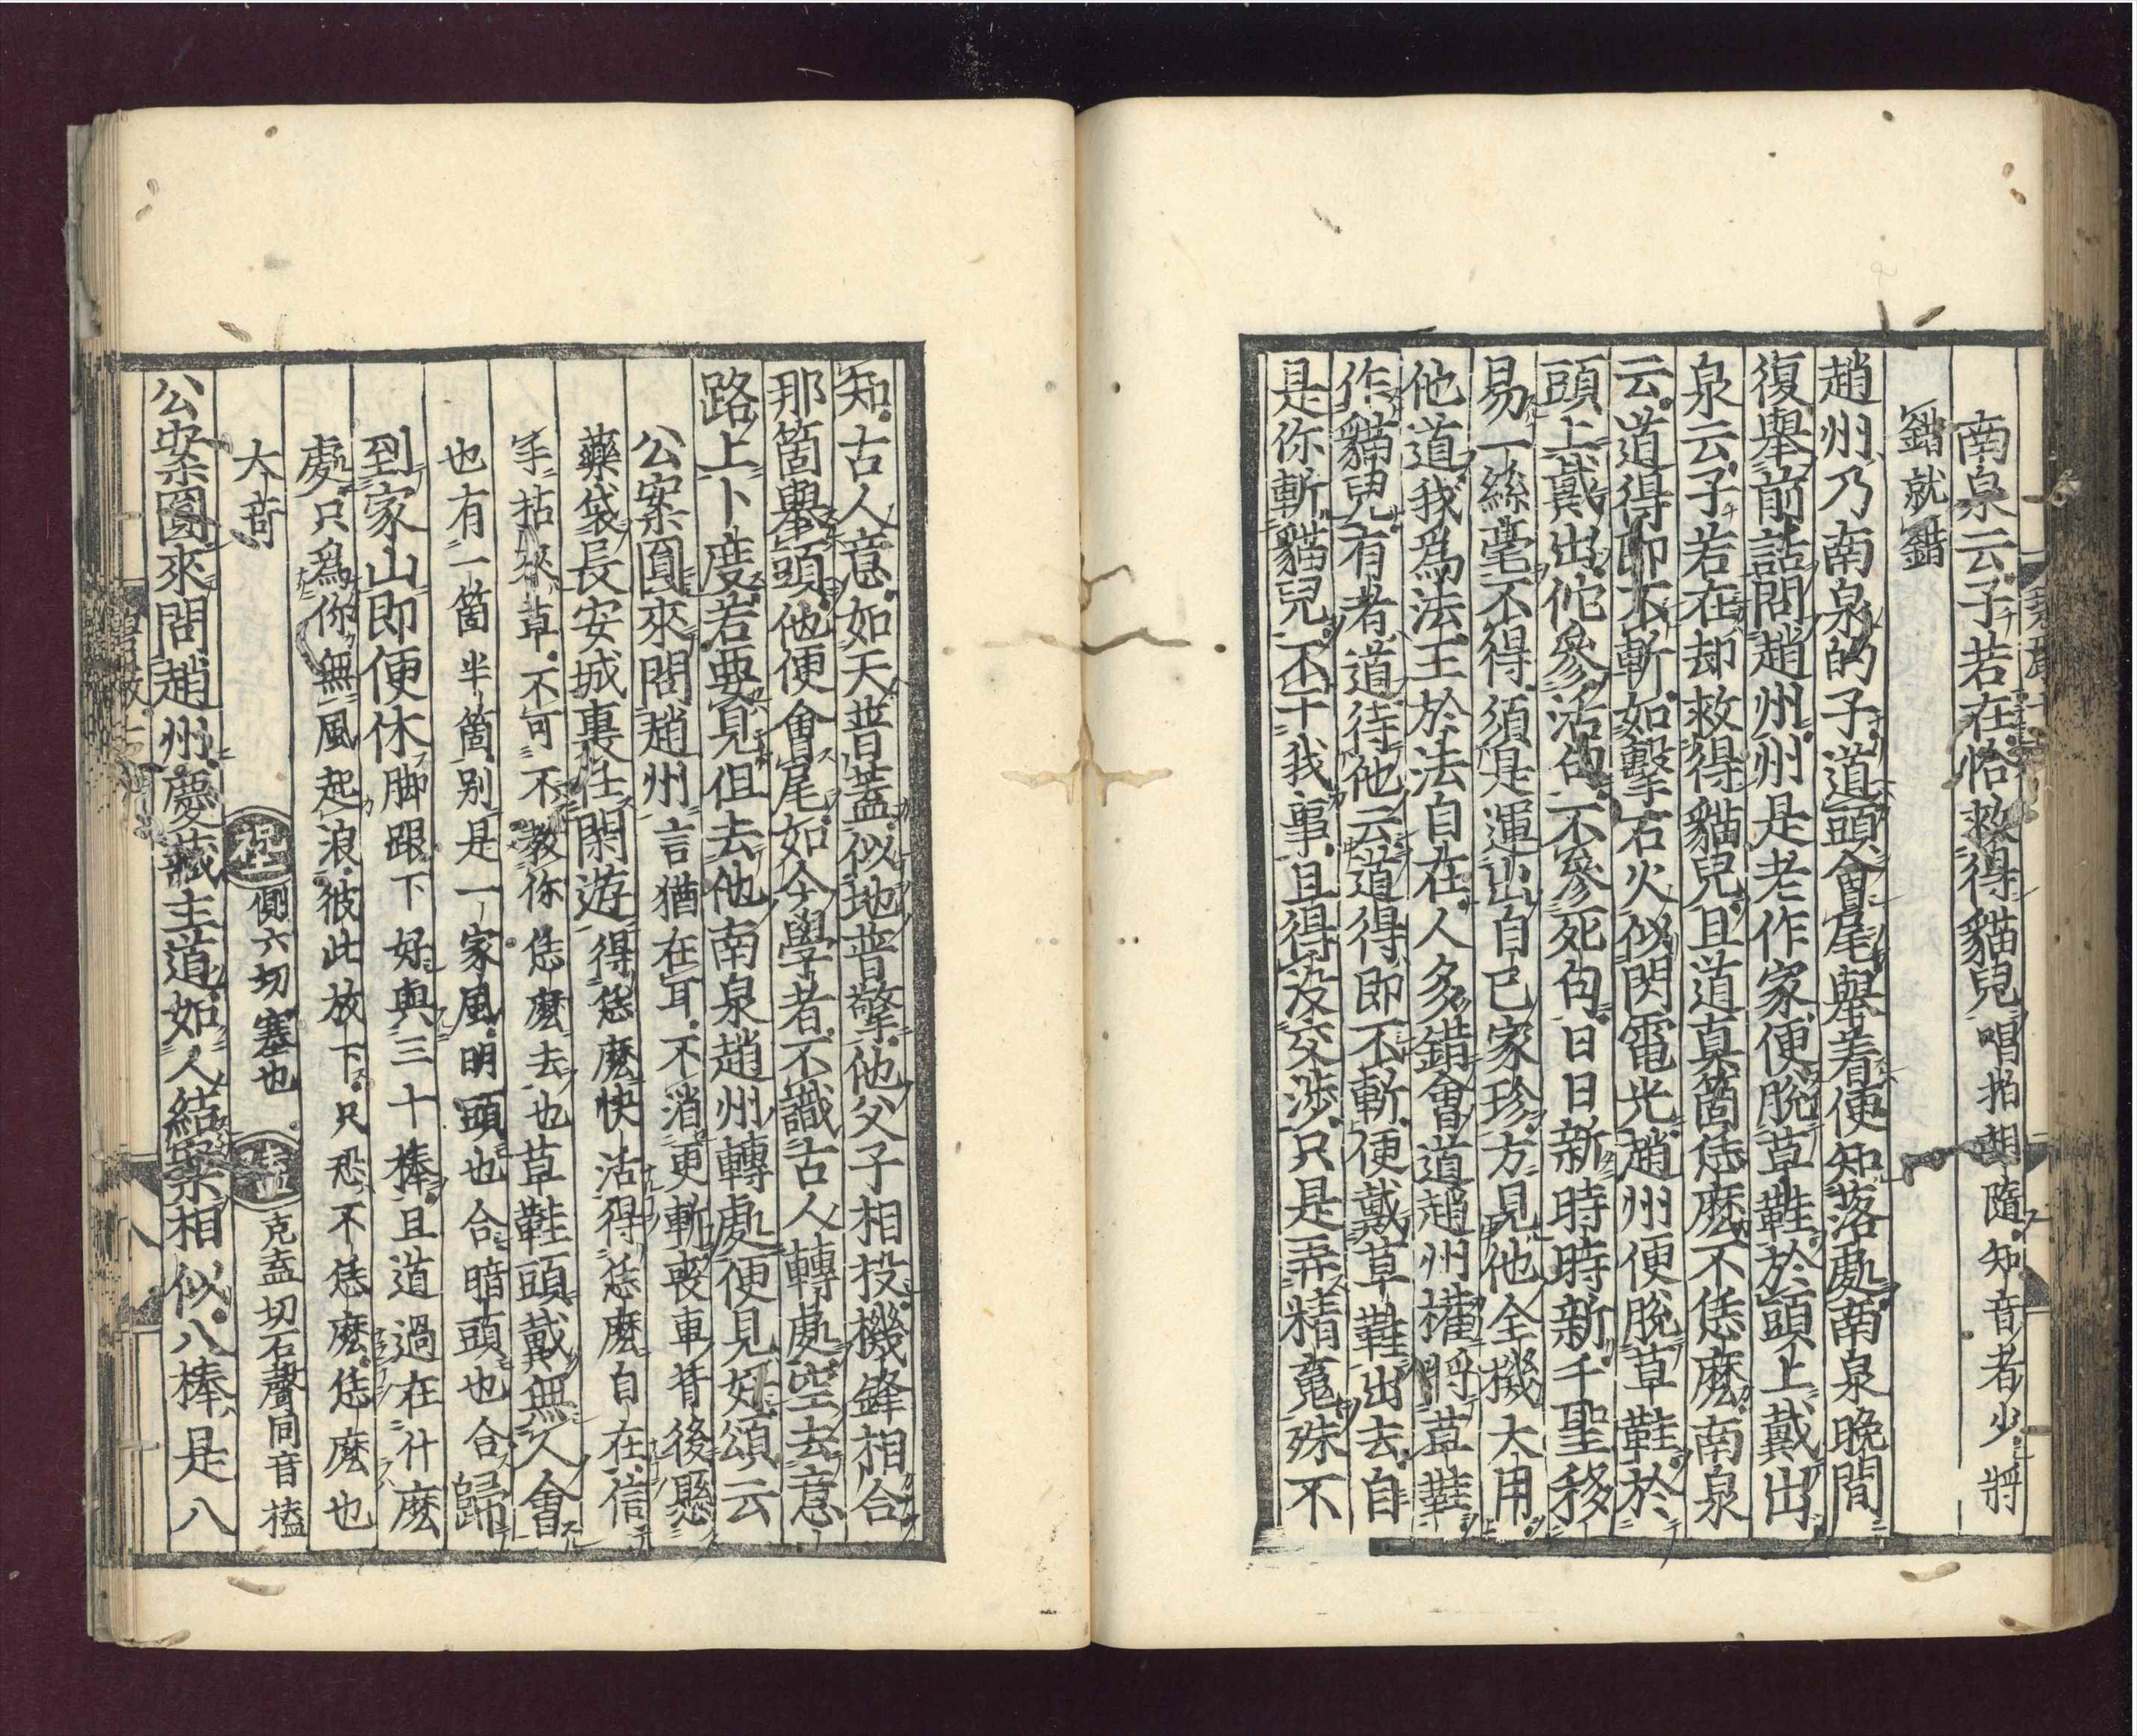 南泉云子若在恰救得貓兒唱拍相隨知音者少將
錯就錯
趙州乃南泉的子道頭會尾舉着便知落處南泉晚間
復舉前話問趙州州是老作家便脫草鞋於頭上戴出
泉云子若在却救得貓兒且道真箇恁麽不恁麽南泉
云道得即不斬如擊石火似閃電光趙州便脫草鞋於
頭上戴出佗參活句不參死句日日新時時新千聖移
易一絲毫不得須是運出自己家珍方見他全機大用
他道我爲法王於法自在人多錯會道趙州權將草鞋
作貓兒有者道待他云道得即不斬便戴草鞋出去自
是你斬貓兒不干我事且得沒交涉只是弄精䰟殊不
知古人意如天普蓋似地普擎他父子相投機鋒相合
那箇舉頭他便會尾如今學者不識古人轉處空去意
路上卜度若要見但去他南泉趙州轉處便見好頌云
公案圓來問趙州言猶在耳不消更斬喪車背後懸
藥袋長安城裏任閑遊得恁麽快活得恁麽自在信
手拈來草不可不教你恁麽去也草鞋頭戴無人會
也有一箇半箇別是一家風明頭也合暗頭也合歸
到家山即便休脚跟下好與三十棒且道過在什麽
處只爲你無風起浪彼此放下只恐不恁麽恁麽也
大奇　側六切塞也　克盍切石聲同音榼
公案圓來問趙州慶藏主道如人結案相似八棒是八